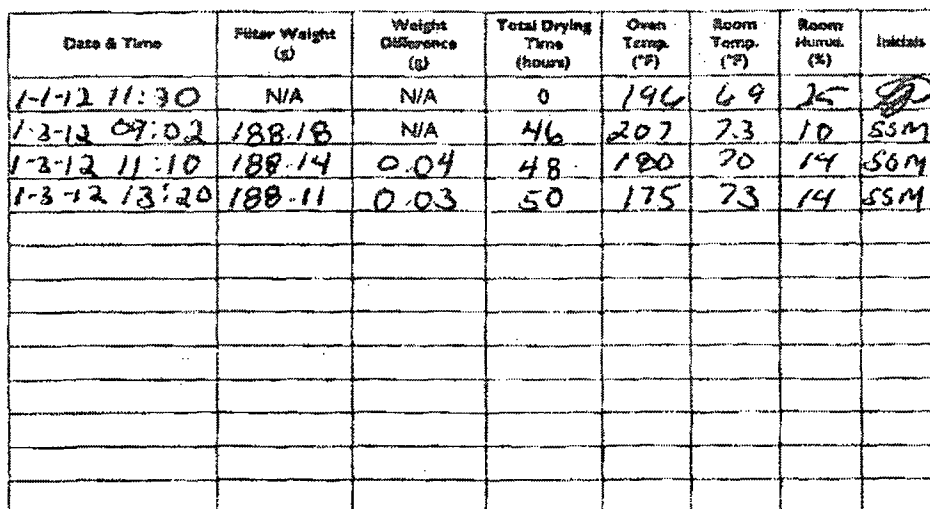 Date & Time Filter Weight (g) Weight Difference (g) Total Drying Time (hours) Oven Temp. (°F) Room Temp. (°F) Room Humid. (%) Initials
1-1-12 11:30 N/A N/A 0 196 69 25
1-3-12 09:02 188.18 N/A 46 207 73 10 SSM
1-3-12 11:10 188.14 0.04 48 180 70 14 SSM
1-3-12 13:20 188.11 0.03 50 175 73 14 SSM